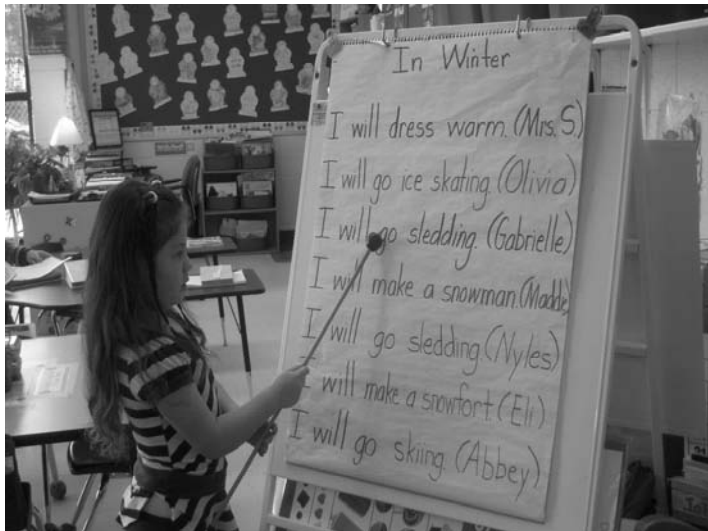 In Winter
I will dress warm. (Mrs. S.)
I will go ice skating. (Olivia)
I will go sledding. (Gabrielle)
I will make a snowman. (Maddie)
I will go sledding. (Nyles)
I will make a snowfort. (Eli)
I will go skiing. (Abbey)